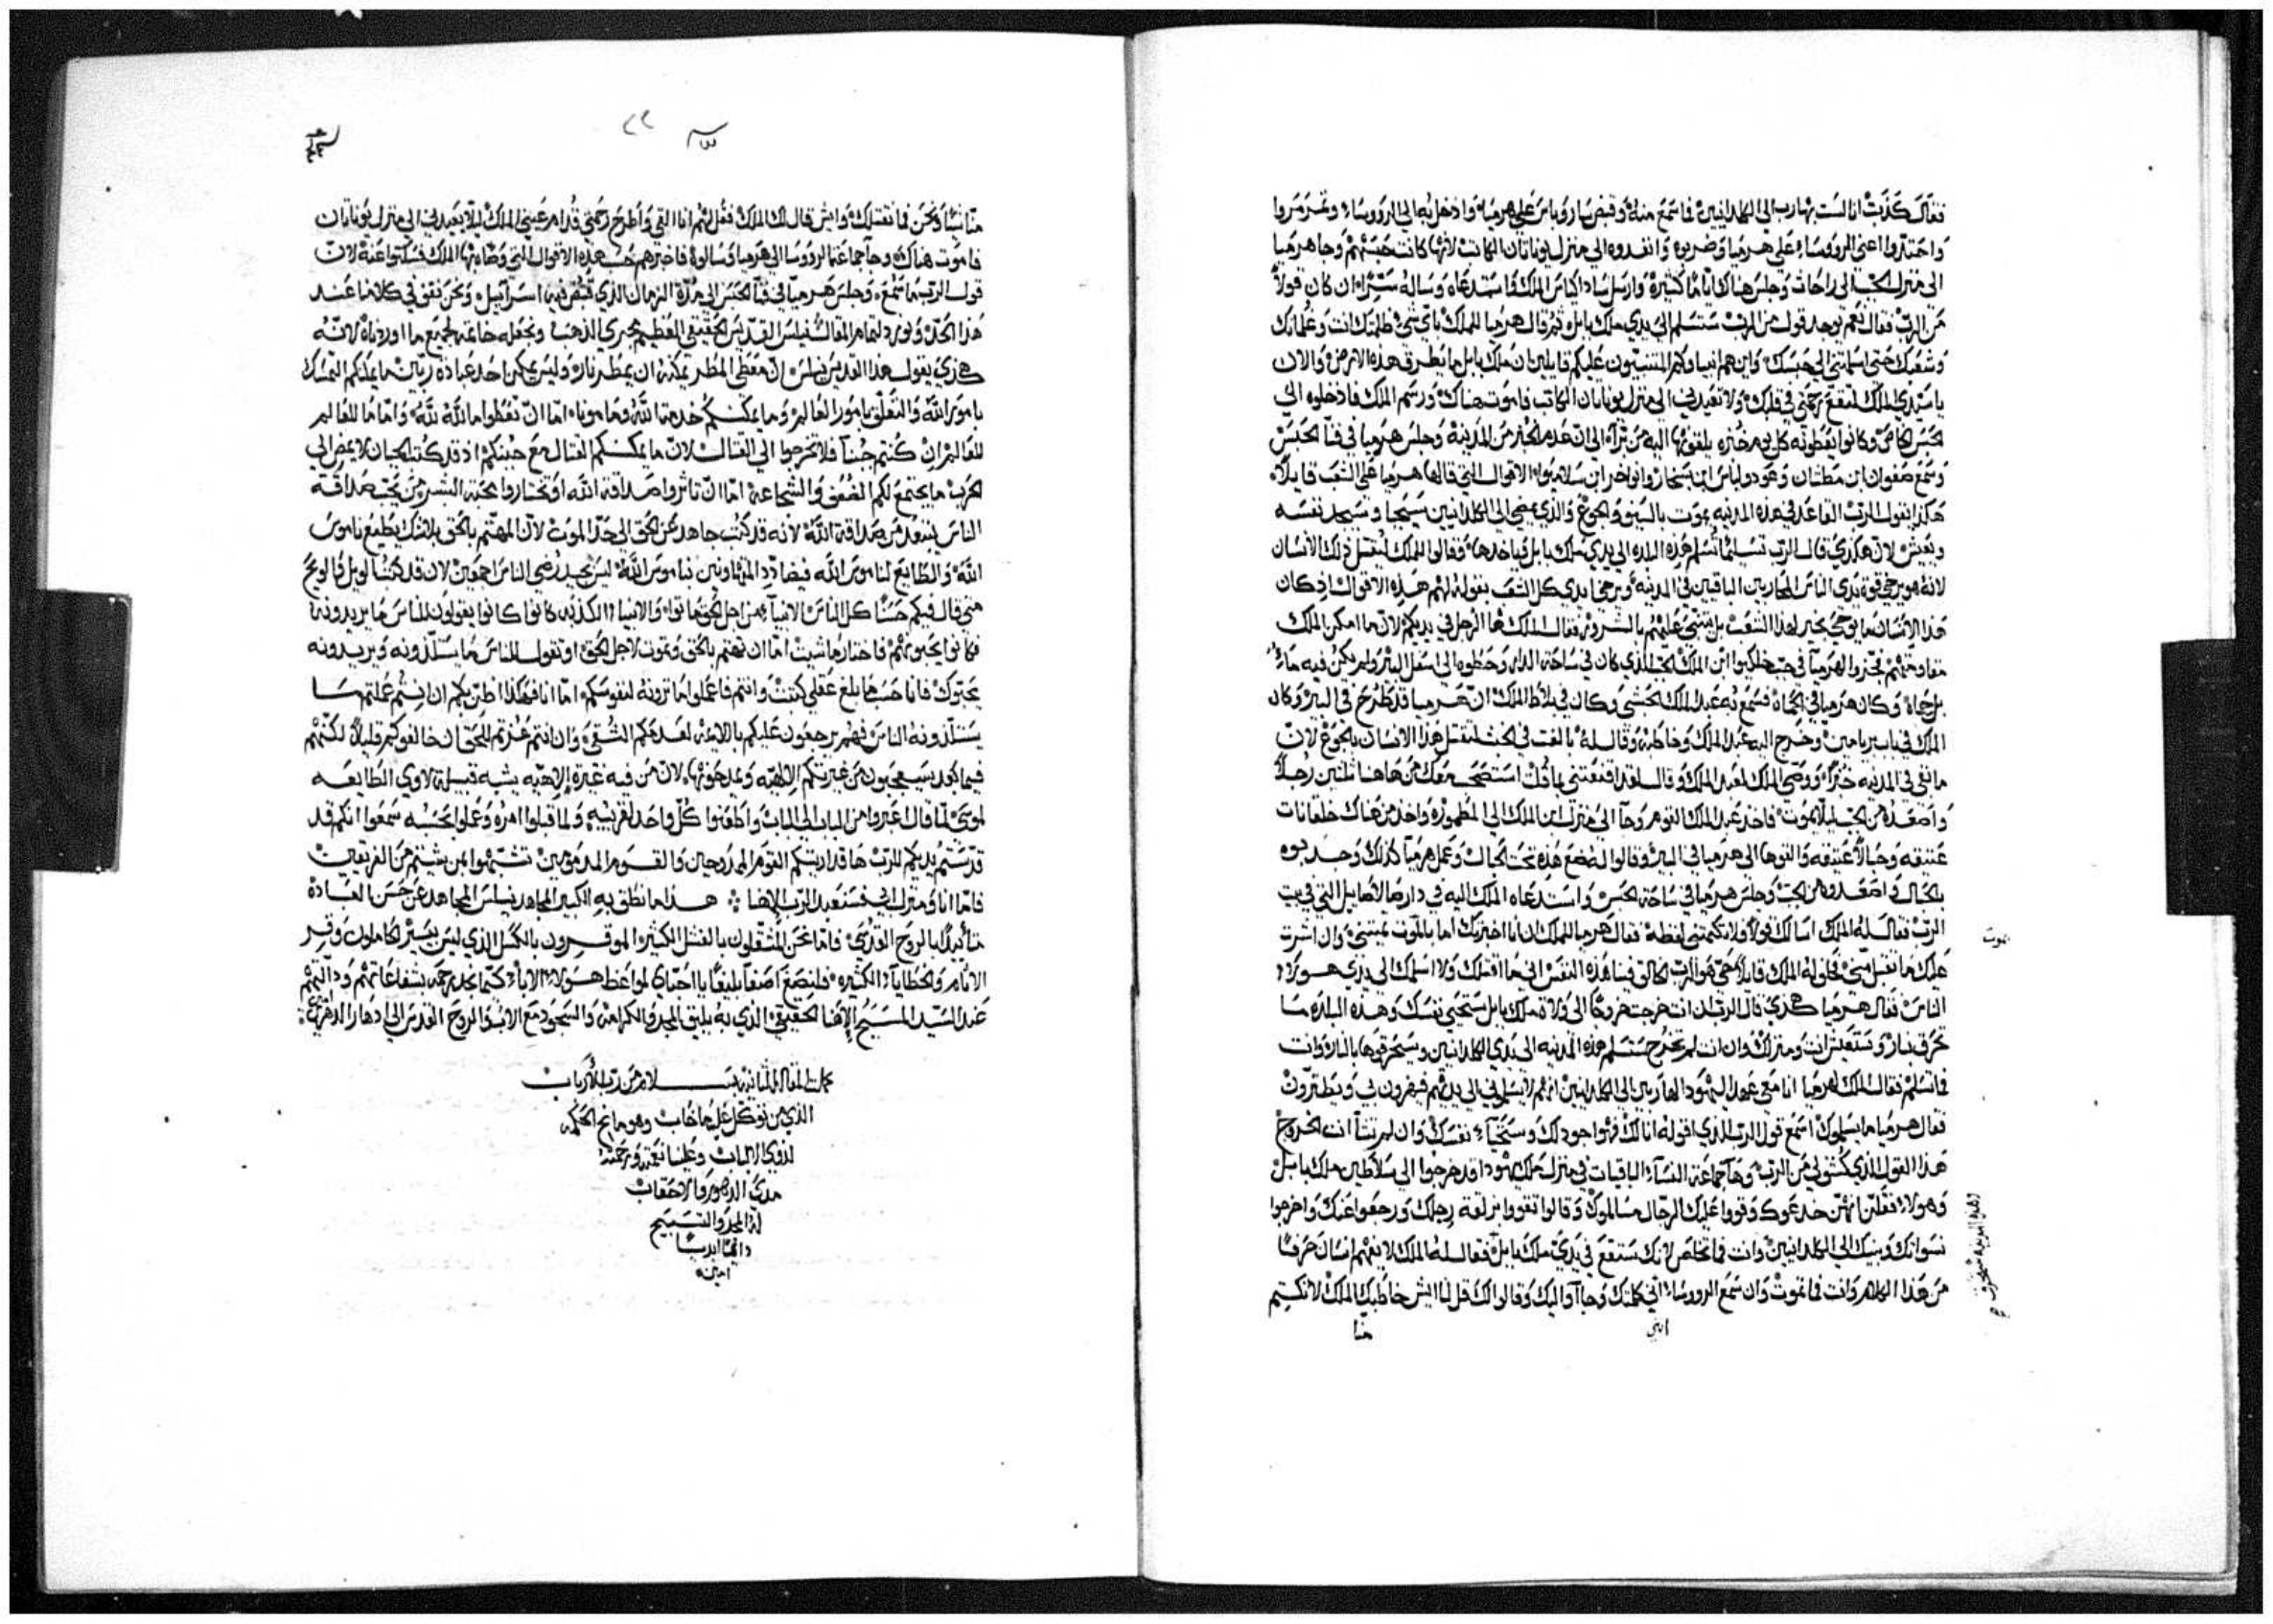 فقال كذبت انا لست بهارب الى الكلدانيين فما سمع منه وقبض سارويا س على هرميا وادخل به الى الرووساء وتمرمروا
واحتدّوا اعنى الرووساء على هرميا وضربوه وانفدوه الى منزل يوناتان الكاتب لانها كانت حبسهم وجا هرميا
الى منزل الجب الى راحات وجلس هناك اياما كثيرة وارسل ساداكياس الملك فاستدعاه وساله ستراً ان كان قولاً
من الرب فقال نعم توجد قول من الرب ستسلم الى يدي ملك بابل ثم قال هرميا للملك باي شي ظلمتك انت وغلمانك
وشعبك حتى اسلمتني الى حبسك واين هم انبياوكم المتنبيون عليكم قايلين ان ملك بابل ما يطرق هذه الارض والان
يا سيدي الملك لتقع رحمتي في قلبك ولا تعيدني الى منزل يوناتان الكاتب فاموت هناك ورسم الملك فادخلوه الى
الحبس الخاص وكانوا يعطونه كل يوم خبزه يلقونها اليه من براّ الى ان عدم الخبز من المدينة وجلس هرميا في فنآ الحبس
وسمع صفوان ابن مطثان وغودولياس ابن بسحار وايواخر ابن سلاميوا الاقوال التي قالها هرميا على الشعب قايلاً
هكذا يقول الرب القاعد في هذه المدينه يموت بالسيف والجوع والذي يمضي الى الكلدانيين سيحيا وسيجد نفسه
ويعيش لان هكذي قال الرب تسليماً تسلم هذه البلده الى يدي ملك بابل فياخذها وقالوا للملك ليقتل ذلك الانسان
لانه هو يرخي قوة يدي الناس المحاربين الباقيين في المدينه ويرخي ايدي كل الشعب بقوله لهم هذه الاقوال اذ كان
هذا الانسان ما يوحي بخير لهذا الشعب بل يتنبى عليهم بالشرور فقال الملك ها الرجل في يديكم لان ما امكن الملك
مقاومتهم فجروا لهرميآ في جب ملكيوا ابن الملك الجب الذي كان في ساحة الدار وحطوه الى اسفل البير ولم يكن فيه ماء
بل حماة وكان هرميا في الحماة فسمع به عبد الملك الحبشي وكان في بلاط الملك ان هرميا قد طرح في البير وكان
الملك في باب بنيامين وخرج اليه عبد الملك وخاطبه وقال له بالغت في الخبث لتقتل هذا الانسان بالجوع لان
ما بقي في المدينه خبزاً ووصى الملك لعبد الملك وقال لقد اقنعتني بما قلت استصحب معك من هاهنا ثلثين رجلاً
واصعده من الجب ليلا يموت فاخذ عبد الملك القوم وجآ الى منزل ابن الملك الى المطموره واخذ من هناك خلقانات
عتيقه وحبالاً عتيقه والقوها الى هرميا في البير وقالوا له ضع هذه تحت الحبال وعمل هرميا كذلك وجذبوه
بالحبال واصعدوه من الجب وجلس هرميا في ساحة الحبس واستدعاه الملك اليه في دار صالاصايل التي في بيت
الرب فقال له الملك اسالك قولاً فلا تكتمني لفظة فقال هرميا للملك ان انا اخبرتك اما بالموت تميتني وان اشرت
عليك ما تقبل مني فحلف له الملك قايلاً حي هو الرب الخالق فينا هذه النفس اني ما اقتلك ولا اسلمك الى يدي هولاء
الناس فقال هرميا هكذي قال الرب ان انت خرجت خروجاً الى ولاة ملك بابل ستحيى نفسك وهذه البلده ما
تحرق بنار وستعيش انت ومنزلك وان انت لم تخرج ستسلم هذه المدينه الى يدي الكلدانيين وسيحرقوها بالنار وانت
فما تسلم فقال الملك لهرميا انا معي عول اليهود الهاربين الى الكلدانيين انهم لا يسلموني الى يديهم فيهزون بي ويطنزون
فقال هرميا ما يسلموك اسمع قول الرب الذي اقوله انا لك فهو اجود لك وستحيآ نفسك وان لم تشآ انت الخروج
هذا القول الذي كشف لي من الرب وها جماعة النسآء الباقيات في منزل ملك يهودا قد خرجوا الى سلاطين ملك بابل
وهولاء فقلن انهن خدعوك وقووا عليك الرجال مسالموك وقالوا تقووا بزلقة رجلك ورجعوا عنك واخرجوا
نسوانك وبنيك الى الكلدانيين وانت فما تخلص لانك ستقع في يدي ملك بابل فقال له الملك لا يفهم انسان حرفاً
من هذا الكلام وانت فما تموت وان سمع الرووساء انني كلمتك وجآوا اليك وقالوا لك قل لنا ايش خاطبك الملك لا تكتم
يموت
وهذه المدينه ستحرق
انني
منا
منا شياً ونحن فما نقتلك وايش قال لك الملك فقل لهم انا القي واطرح رحمتي قدام عيني الملك ليلا يعيدني الى منزل يوناتان
فاموت هناك وجآ جماعة الرووسا الى هرميا وسالوه فاخبرهم حسب هذه الاقوال التي وصاه بها الملك فسكتوا عنه لان
قول الرب ما سمع وجلس هرميآ في فنآ الحبس الى مدة الزمان الذي قبض فيه اسرآييل ونحن نقف في كلامنا عند
هذا الحد ونورد لتمام المقالة فيلس القديس الحقيقي العظيم مجرى الذهب ونجعله خاتمة لجميع ما اوردناه لانه
هكذي يقول هذا القديس نيلس ان معطي المطر يمكنه ان يمطر نارا وليس يمكن احد عبادة ربين ما يمكنكم التمسك
بامور الله والتعلق بامور العالم وما يمكنكم خدمة الله ومامونا اما ان تعطوا ما لله لله واما ما للعالم
للعالم ان كنتم جبنآ فلا تخرجوا الى القتال لان ما يمكنكم القتال مع جبنكم اذ قد كتب الجبان لا يمض الى
الحرب ما يجتمع لكم الضعف والشجاعة اما ان تاثروا صداقة الله او تختاروا محبة البشر من يحب صداقة
الناس يبتعد من صداقة الله لانه قد كتب جاهد عن الحق الى حد الموت لان المهتم بالحق بلا شك يطيع ناموس
الله والطايع لناموس الله فيضادد المتهاونين بناموس الله ليس يجيد رضي الناس اجمعين لان قد كتب الويل فالويح
متى قال فيكم حسناً كل الناس الانبيآء من اجل الحق ماتوا والانبيا الكذبه كانوا كانوا يقولون للناس ما يريدونه
فكانوا يحبونهم فاختار ما شيت اما ان تهتم بالحق وتموت لاجل الحق او تقول للناس ما يستلذونه ويريدونه
يحبوك فانا حسب ما بلغ عقلي كتبت وانتم فاعملوا ما ترونه لنفوسكم اما انا فهكذا اظن بكم ان انتم عملتم ما
يستلذونه الناس فهم يرجعون عليكم بالايمة لعدمكم التقى وان انتم غرتم للحق ان خالفوكم قليلاً لكنهم
فيما بعد سيعجبون من غيرتكم الالهيه ويمدحونها لان من فيه غيرة إلاهيه يشبه قبيلة لاوي الطايعه
لموسى لما قال اعبروا من الباب الى الباب واطعنوا كل واحد لقريبه ولما قبلوا امره وعملوا بحسبه سمعوا انكم قد
قدستم يديكم للرب ها قد اريتكم القوم الممدوحين والقوم المذمومين تشبهوا بمن شيتم من الفريقين
فاما انا ومنزل ابي فسنعبد الرب الاهنا ܀ هذا ما نطق به الكبير المجاهد نيلس المجاهد عن حسن العباده
متأيداً بالروح القدسي فاما نحن المثقلون بالفشل الكثير الموقرون بالكسل الذي ليس بيسير الكاملون وقر
الاثام والخطايآ الكثيره فلنصغ اصغآ بليغا يا احباي لمواعظ هولاء الاباء كيما نجد رحمه بشفاعاتهم ودالتهم
عند السيد المسيح الاهنا الحقيقي الذي به يليق المجد والكرامه والسجود مع الاب والروح القدس الى ادهار الداهرين
امين
كملت المقالة الثانية بسلام من رب الارباب
الذي من توكل عليه ما خاب وهو مانح الحكمه
لذوي الالباب وعلينا نعمته ورحمته
مدى الدهور والاحقاب
له المجد والتسبيح
دايماً ابدياً
امين